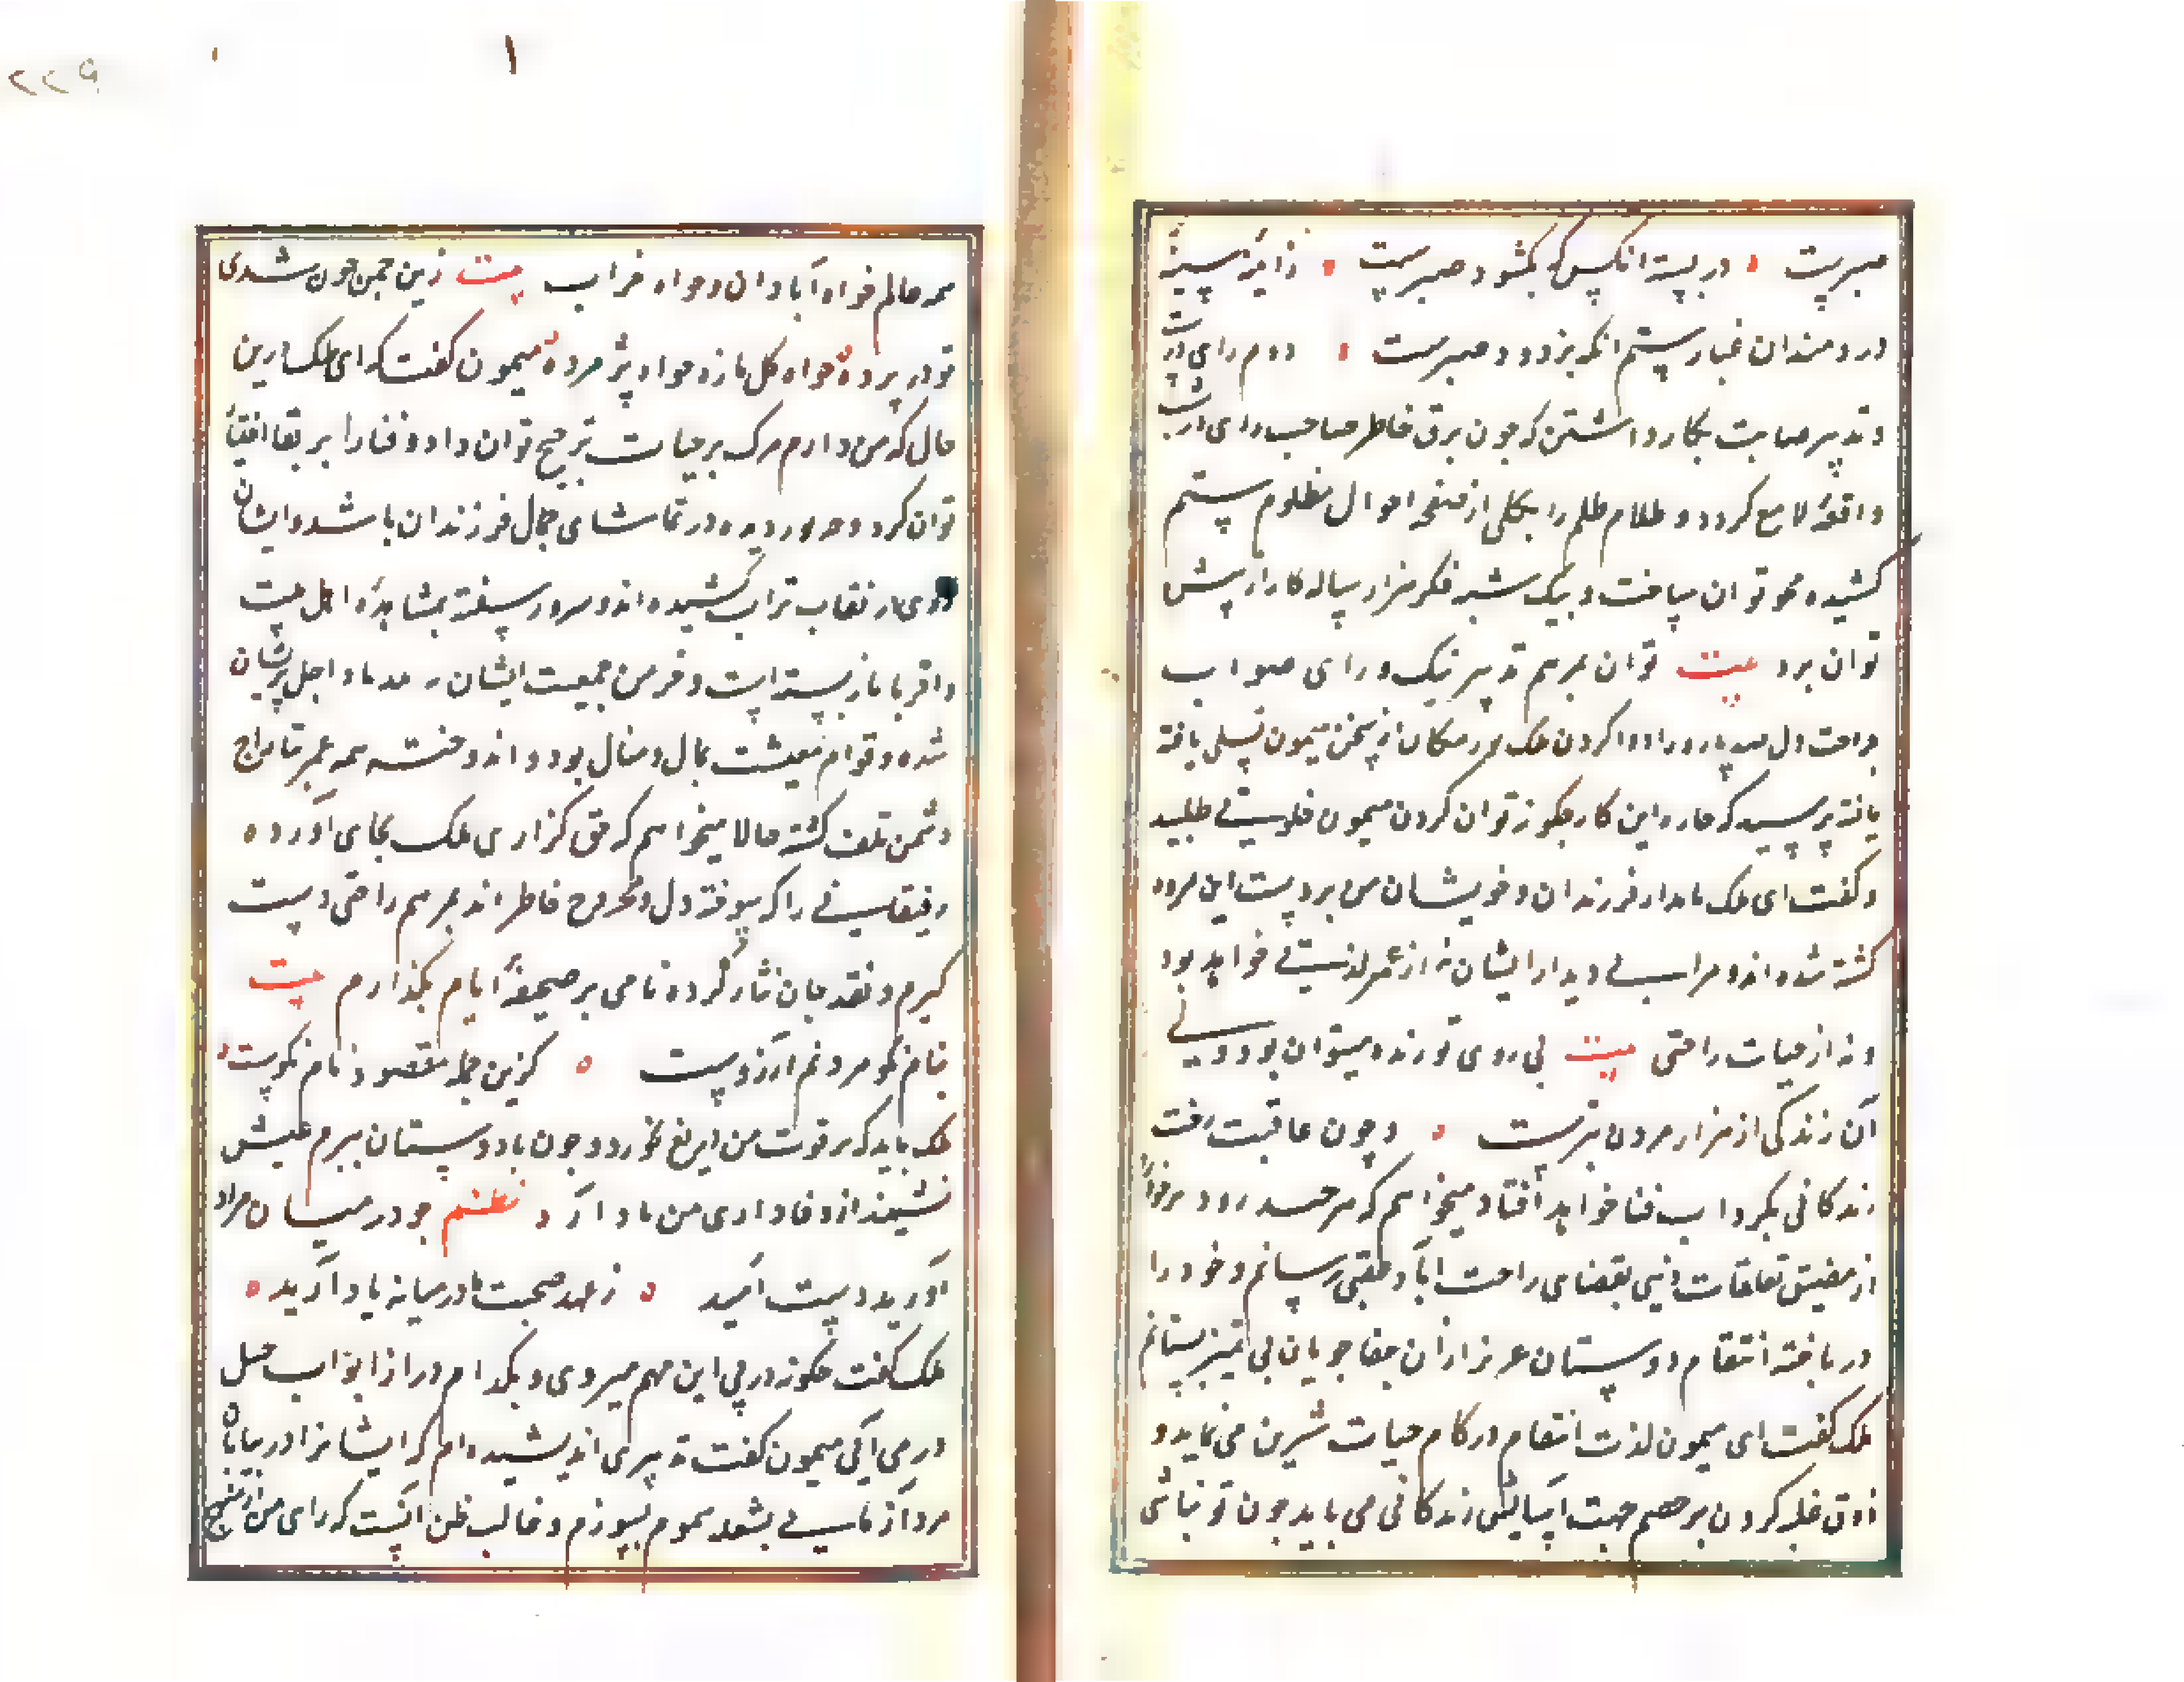 صبرست در بسته انکس که بکشود صبرست ز اینهٔ سینهٔ
دردمندان غبار ستم انکه بزدود صبرست دوم رای درست
و تدپیر صایبت بکار داشتن که جون برق خاطر صاحب رای از شب
واقعهٔ لامع کردد و ظلام ظلم را بکلی از صفحه احوال مظلوم ستم
کشیده محو توان ساخت و بیک شبه فکر هزار ساله کار از پیش
توان برد بیت توان بمرهم تدپیر نیک و رای صواب
جراحت دل صد پاره را دوا کردن ملک از سخن میمون تسلی یافته
یافته پرسید که چاره این کار جکونه توان کردن میمون خلوستی طلبید
و کفت ای ملک نامدار فرزندان و خویشان من بر دست این مرده
کشته شده اند و مرا بی دیدار ایشان نه از عمر لذتی خواهد بود
و نه از حیات راحتی بیت بی روی تو زنده میتوان بود ولی
آن زندکی از هزار مردن بترست و چون عاقبت رخت
زندکانی بکرداب فنا خواهد افتاد میخواهم که هرجند زودتر خود را
از مضیق تعلقات دنیی بفضای راحت اباد عقبی رسانم و خود را
در باخته انتقام دوستان عزیز از ان جفا جویان بی تمیز بستانم
ملک کفت ای میمون لذت انتقام در کام حیات شیرین می نماید و
ذوق غلبه کردن بر خصم جهت اسایش زندکانی می باید جون تو نباشی
همه عالم خواه آبادان و خواه خراب بیت زین جمن جون شدی
تو در پرده خواه کل تازه خواه پژمرده میمون کفت که ای ملک درین
حال که من دارم مرک بر حیات ترجیح توان داد و فنا را بر بقا اختیار
توان کرد و جه نور دیده در تماشای جمال فرزندان باشد و ایشان
روی در نقاب تراب کشیده اند و سرور سینه بمشاهدهٔ اهل بیت
و اقربا باز بسته است و خرمن جمعیت ایشان بتندباد اجل پریشان
شده و قوام معیشت بمال و منال بود و اندوخته همه عمر بتاراج
دشمن تلف کشته حالا میخواهم که حق کزاری ملک بجای آورده
رفیقانی را که سوخته دل و مجروح خاطر اند بمرهم راحتی دست
کیرم و نقد جان نثار کرده نامی بر صحیفهٔ ایام بکذارم بیت
بنام نکو مردنم آرزوست کزین جمله مقصود نام نکوست
ملک باید که بر فوت من دریغ نخورد و جون با دوستان ببزم عیش
نشیند از وفاداری من یاد آرد نظم جو در میان مراد
آورید دست امید ز عهد صحبت ما در میانه یاد آرید
ملک کفت جکونه در پی این مهم میروی و بکدام در از ابواب حیل
در می ایی میمون کفت تدبیری اندیشیده ام که ایشانرا در بیابان
مردآزمایی بشعله سموم بسوزم و غالب ظن انست که رای من از منهج